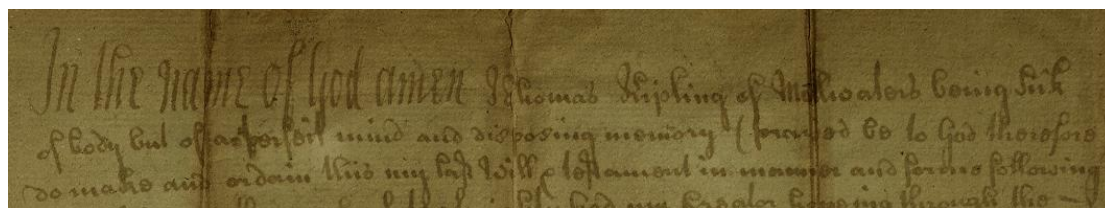 In the Name of God amen I Thomas Kipling of Mallwaters being Sick
of body but of a perfect mind and disposing memory (praised be to God therefore
do make and ordain this my last Will & testament in manner and forme following
my Creator hopeing through the